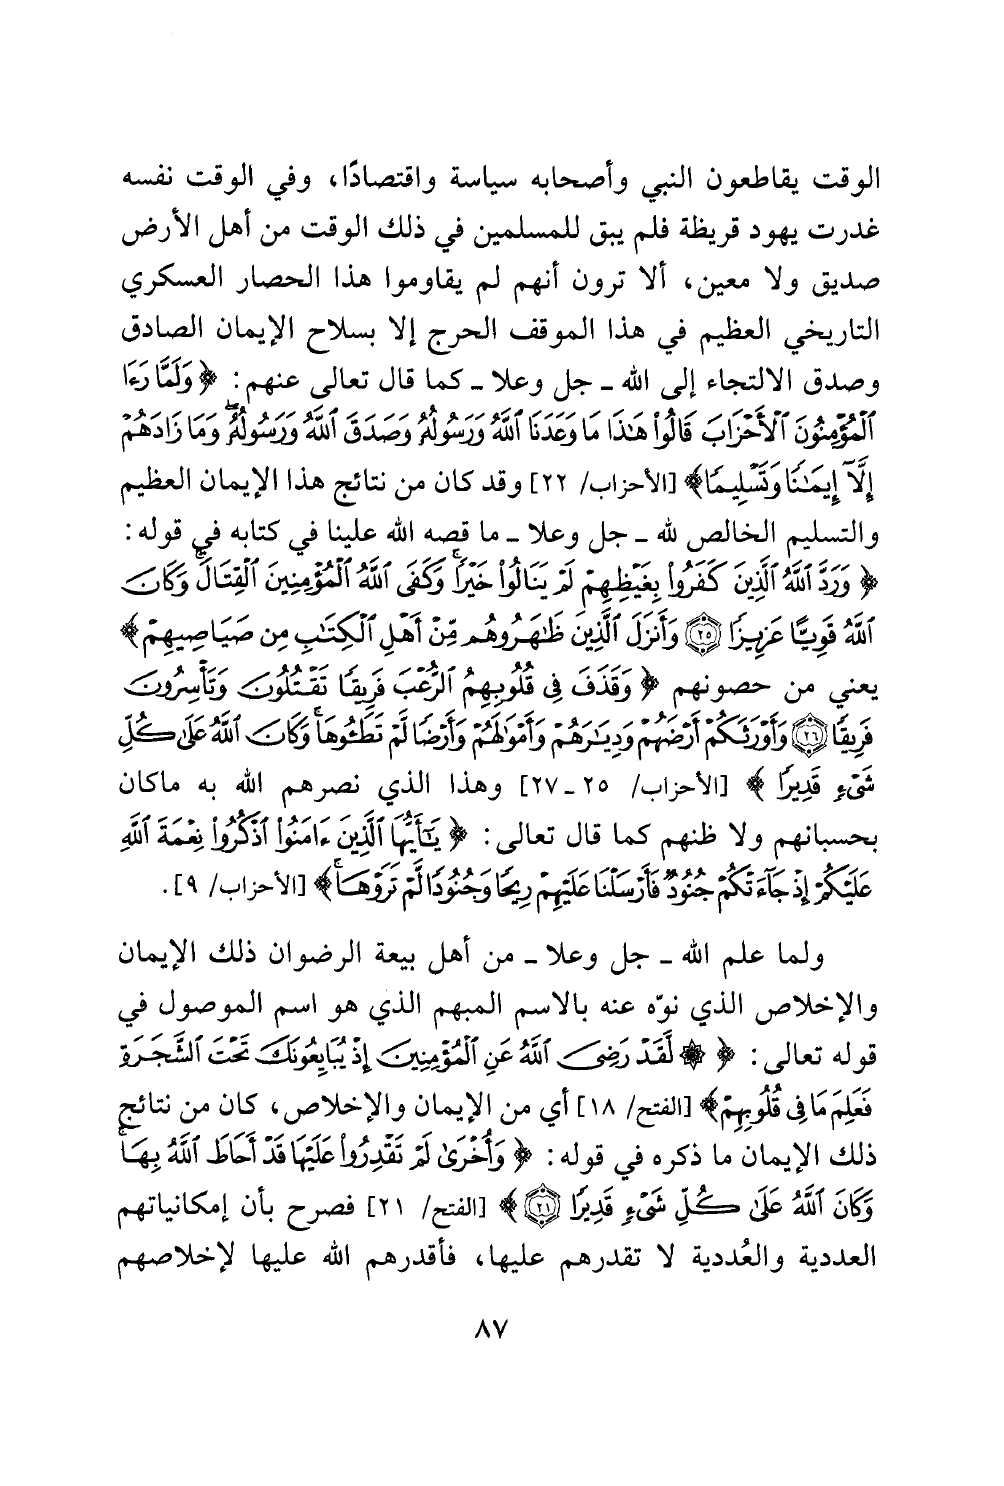 الوقت يقاطعون النبي وأصحابه سياسة واقتصادًا، وفي الوقت نفسه
غدرت يهود قريظة فلم يبق للمسلمين في ذلك الوقت من أهل الأرض
صديق ولا معين، ألا ترون أنهم لم يقاوموا هذا الحصار العسكري
التاريخي العظيم في هذا الموقف الحرج إلا بسلاح الإيمان الصادق
وصدق الالتجاء إلى الله ـ جل وعلا ـ كما قال تعالى عنهم: ﴿ وَلَمَّا رَءَا
ٱلْمُؤْمِنُونَ ٱلْأَحْزَابَ قَالُوا۟ هَٰذَا مَا وَعَدَنَا ٱللَّهُ وَرَسُولُهُۥ وَصَدَقَ ٱللَّهُ وَرَسُولُهُۥۚ وَمَا زَادَهُمْ
إِلَّآ إِيمَٰنًا وَتَسْلِيمًا﴾ [الأحزاب/ ٢٢] وقد كان من نتائج هذا الإيمان العظيم
والتسليم الخالص لله ـ جل وعلا ـ ما قصه الله علينا في كتابه في قوله:
﴿ وَرَدَّ ٱللَّهُ ٱلَّذِينَ كَفَرُوا۟ بِغَيْظِهِمْ لَمْ يَنَالُوا۟ خَيْرًاۚ وَكَفَى ٱللَّهُ ٱلْمُؤْمِنِينَ ٱلْقِتَالَۚ وَكَانَ
ٱللَّهُ قَوِيًّا عَزِيزًا ﴿٢٥﴾ وَأَنزَلَ ٱلَّذِينَ ظَٰهَرُوهُم مِّنْ أَهْلِ ٱلْكِتَٰبِ مِن صَيَاصِيهِمْ﴾
يعني من حصونهم ﴿ وَقَذَفَ فِى قُلُوبِهِمُ ٱلرُّعْبَ فَرِيقًا تَقْتُلُونَ وَتَأْسِرُونَ
فَرِيقًا ﴿٢٦﴾ وَأَوْرَثَكُمْ أَرْضَهُمْ وَدِيَٰرَهُمْ وَأَمْوَٰلَهُمْ وَأَرْضًا لَّمْ تَطَـُٔوهَاۚ وَكَانَ ٱللَّهُ عَلَىٰ كُلِّ
شَىْءٍ قَدِيرًا ﴾ [الأحزاب/ ٢٥ ـ ٢٧] وهذا الذي نصرهم الله به ماكان
بحسبانهم ولا ظنهم كما قال تعالى: ﴿ يَٰٓأَيُّهَا ٱلَّذِينَ ءَامَنُوا۟ ٱذْكُرُوا۟ نِعْمَةَ ٱللَّهِ
عَلَيْكُمْ إِذْ جَآءَتْكُمْ جُنُودٌ فَأَرْسَلْنَا عَلَيْهِمْ رِيحًا وَجُنُودًا لَّمْ تَرَوْهَاۚ﴾ [الأحزاب/ ٩].
ولما علم الله ـ جل وعلا ـ من أهل بيعة الرضوان ذلك الإيمان
والإخلاص الذي نوّه عنه بالاسم المبهم الذي هو اسم الموصول في
قوله تعالى: ﴿ ۞ لَّقَدْ رَضِىَ ٱللَّهُ عَنِ ٱلْمُؤْمِنِينَ إِذْ يُبَايِعُونَكَ تَحْتَ ٱلشَّجَرَةِ
فَعَلِمَ مَا فِى قُلُوبِهِمْ﴾ [الفتح/ ١٨] أي من الإيمان والإخلاص، كان من نتائج
ذلك الإيمان ما ذكره في قوله: ﴿ وَأُخْرَىٰ لَمْ تَقْدِرُوا۟ عَلَيْهَا قَدْ أَحَاطَ ٱللَّهُ بِهَاۚ
وَكَانَ ٱللَّهُ عَلَىٰ كُلِّ شَىْءٍ قَدِيرًا ﴿٢١﴾ ﴾ [الفتح/ ٢١] فصرح بأن إمكانياتهم
العددية والعُددية لا تقدرهم عليها، فأقدرهم الله عليها لإخلاصهم
٨٧